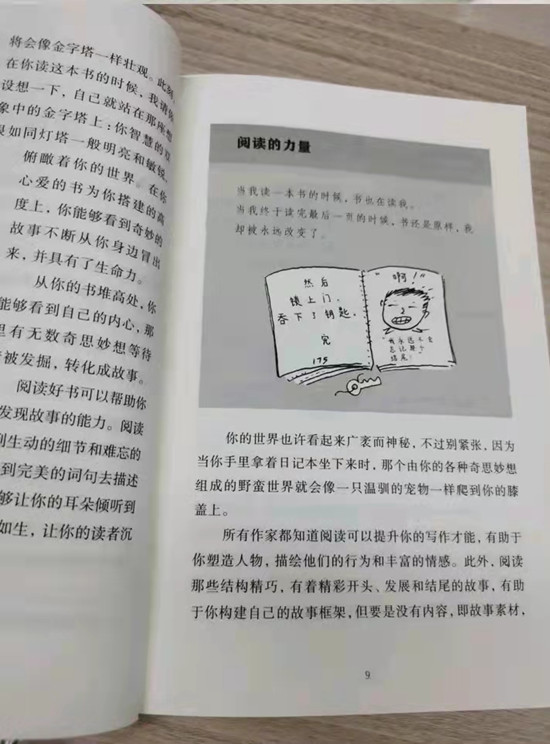 将会像金字塔一样壮观。此时，
在你读这本书的时候，我请你
设想一下，自己就站在那座想
象中的金字塔上：你智慧的双
眼如同灯塔一般明亮和敏锐，
俯瞰着你的世界。在你
心爱的书为你搭建的高
度上，你能够看到奇妙的
故事不断从你身边冒出
来，并具有了生命力。
从你的书堆高处，你
能够看到自己的内心，那
里有无数奇思妙想等待
被发掘，转化成故事。
阅读好书可以帮助你
发现故事的能力。阅读
到生动的细节和难忘的
到完美的词句去描述
够让你的耳朵倾听到
如生，让你的读者沉
阅读的力量
当我读一本书的时候，书也在读我。
当我终于读完最后一页的时候，书还是原样，我
却被永远改变了。
然后
锁上门，
吞下了钥匙。
完
175
"啊！"
"我永远不会
忘记那个
结尾！"
你的世界也许看起来广袤而神秘，不过别紧张，因为
当你手里拿着日记本坐下来时，那个由你的各种奇思妙想
组成的野蛮世界就会像一只温驯的宠物一样爬到你的膝
盖上。
所有作家都知道阅读可以提升你的写作才能，有助于
你塑造人物，描绘他们的行为和丰富的情感。此外，阅读
那些结构精巧，有着精彩开头、发展和结尾的故事，有助
于你构建自己的故事框架，但要是没有内容，即故事素材，
9